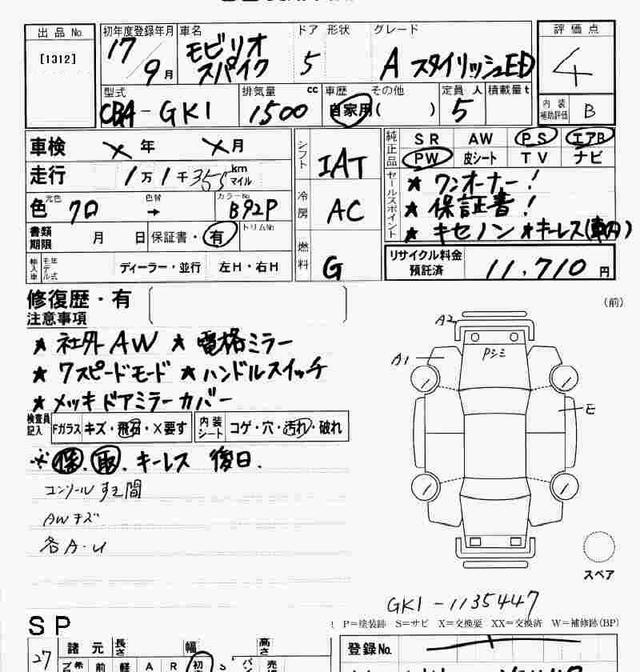 出品No. 初年度登録年月 車名 ドア 形状 グレード 評価点
[1312] 17 9月 モビリオ スパイク 5 A スタイリッシュED 4
型式 排気量 cc 車歴 その他 定員 人 積載量 t 内装補助評価 B
CBA-GK1 1500 自家用 ( ) 5
車検 X 年 X 月 シフト IAT 純正品 SR AW PS エアB
PW 皮シート TV ナビ
走行 1万1千355 km マイル
セールスポイント ★ ワンオーナー!
色 元色 クロ 色替 → カラーNo. B92P 冷房 AC ★ 保証書!
★ キセノン ★キーレス(車内)
書類期限 月 日 保証書・有 トリムNo. 燃料 G リサイクル料金預託済 11,710 円
輸入車 モデル年式 ディーラー・並行 左H・右H
修復歴・有
注意事項
(前)
★ 社外AW ★ 電格ミラー
★ 7スピードモード ★ ハンドルスイッチ
★ メッキドアミラーカバー
A2
Pシミ
A1
E
検査員記入 Fガラス キズ・飛石・X要す 内装シート コゲ・穴・汚れ・破れ
※ 保.取.キーレス 後日.
コンソールすき間
AWキズ
各A.U
スペア
GK1-1135447
P=塗装跡 S=サビ X=交換要 XX=交換済 W=補修跡(BP)
SP
27 諸元 長さ 幅 高さ
登録No.